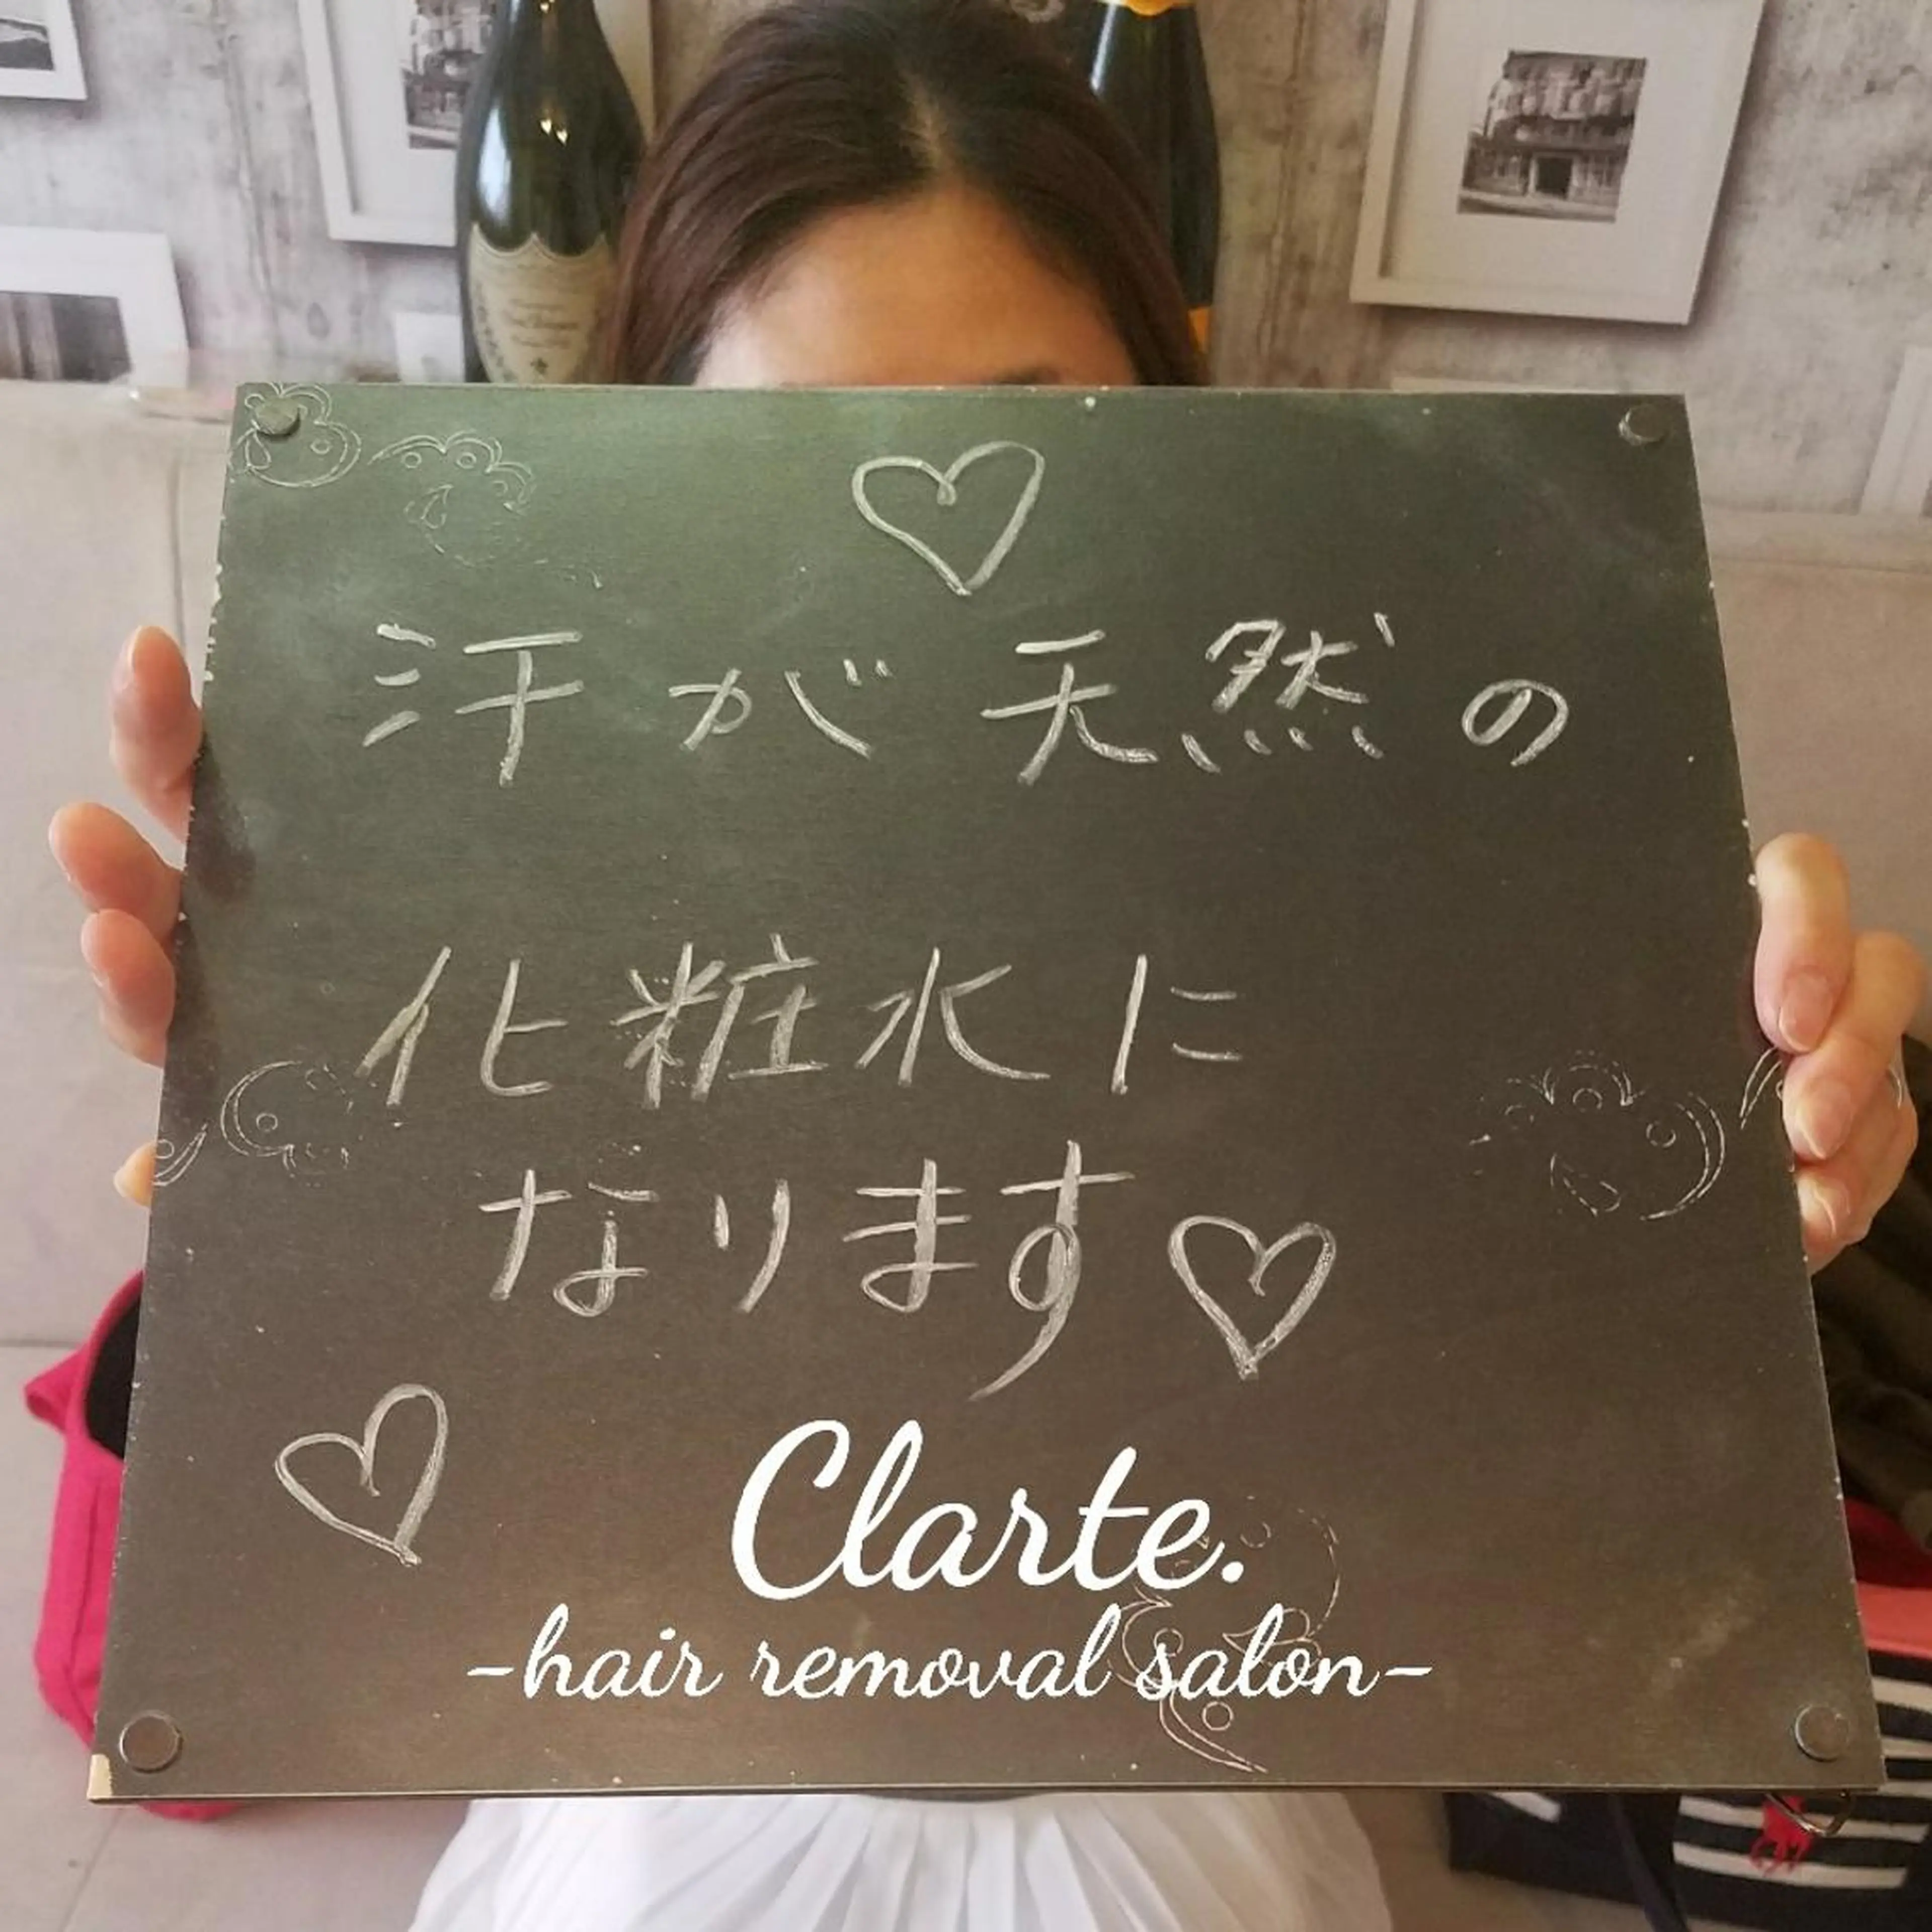 汗が天然の
化粧水に
なります
Clarte.
-hair removal salon-